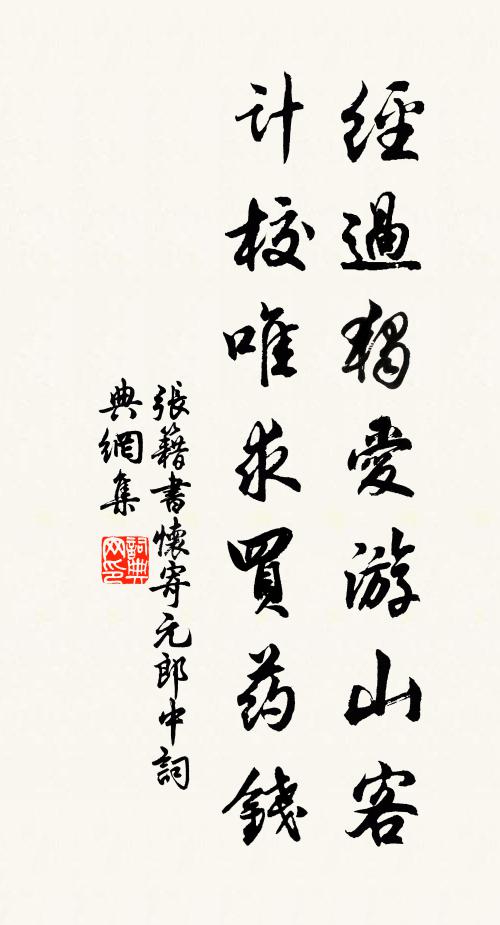 經過獨愛游山客
计校唯求買药錢
張籍書懷寄元郎中詞
典網集
詞典网印